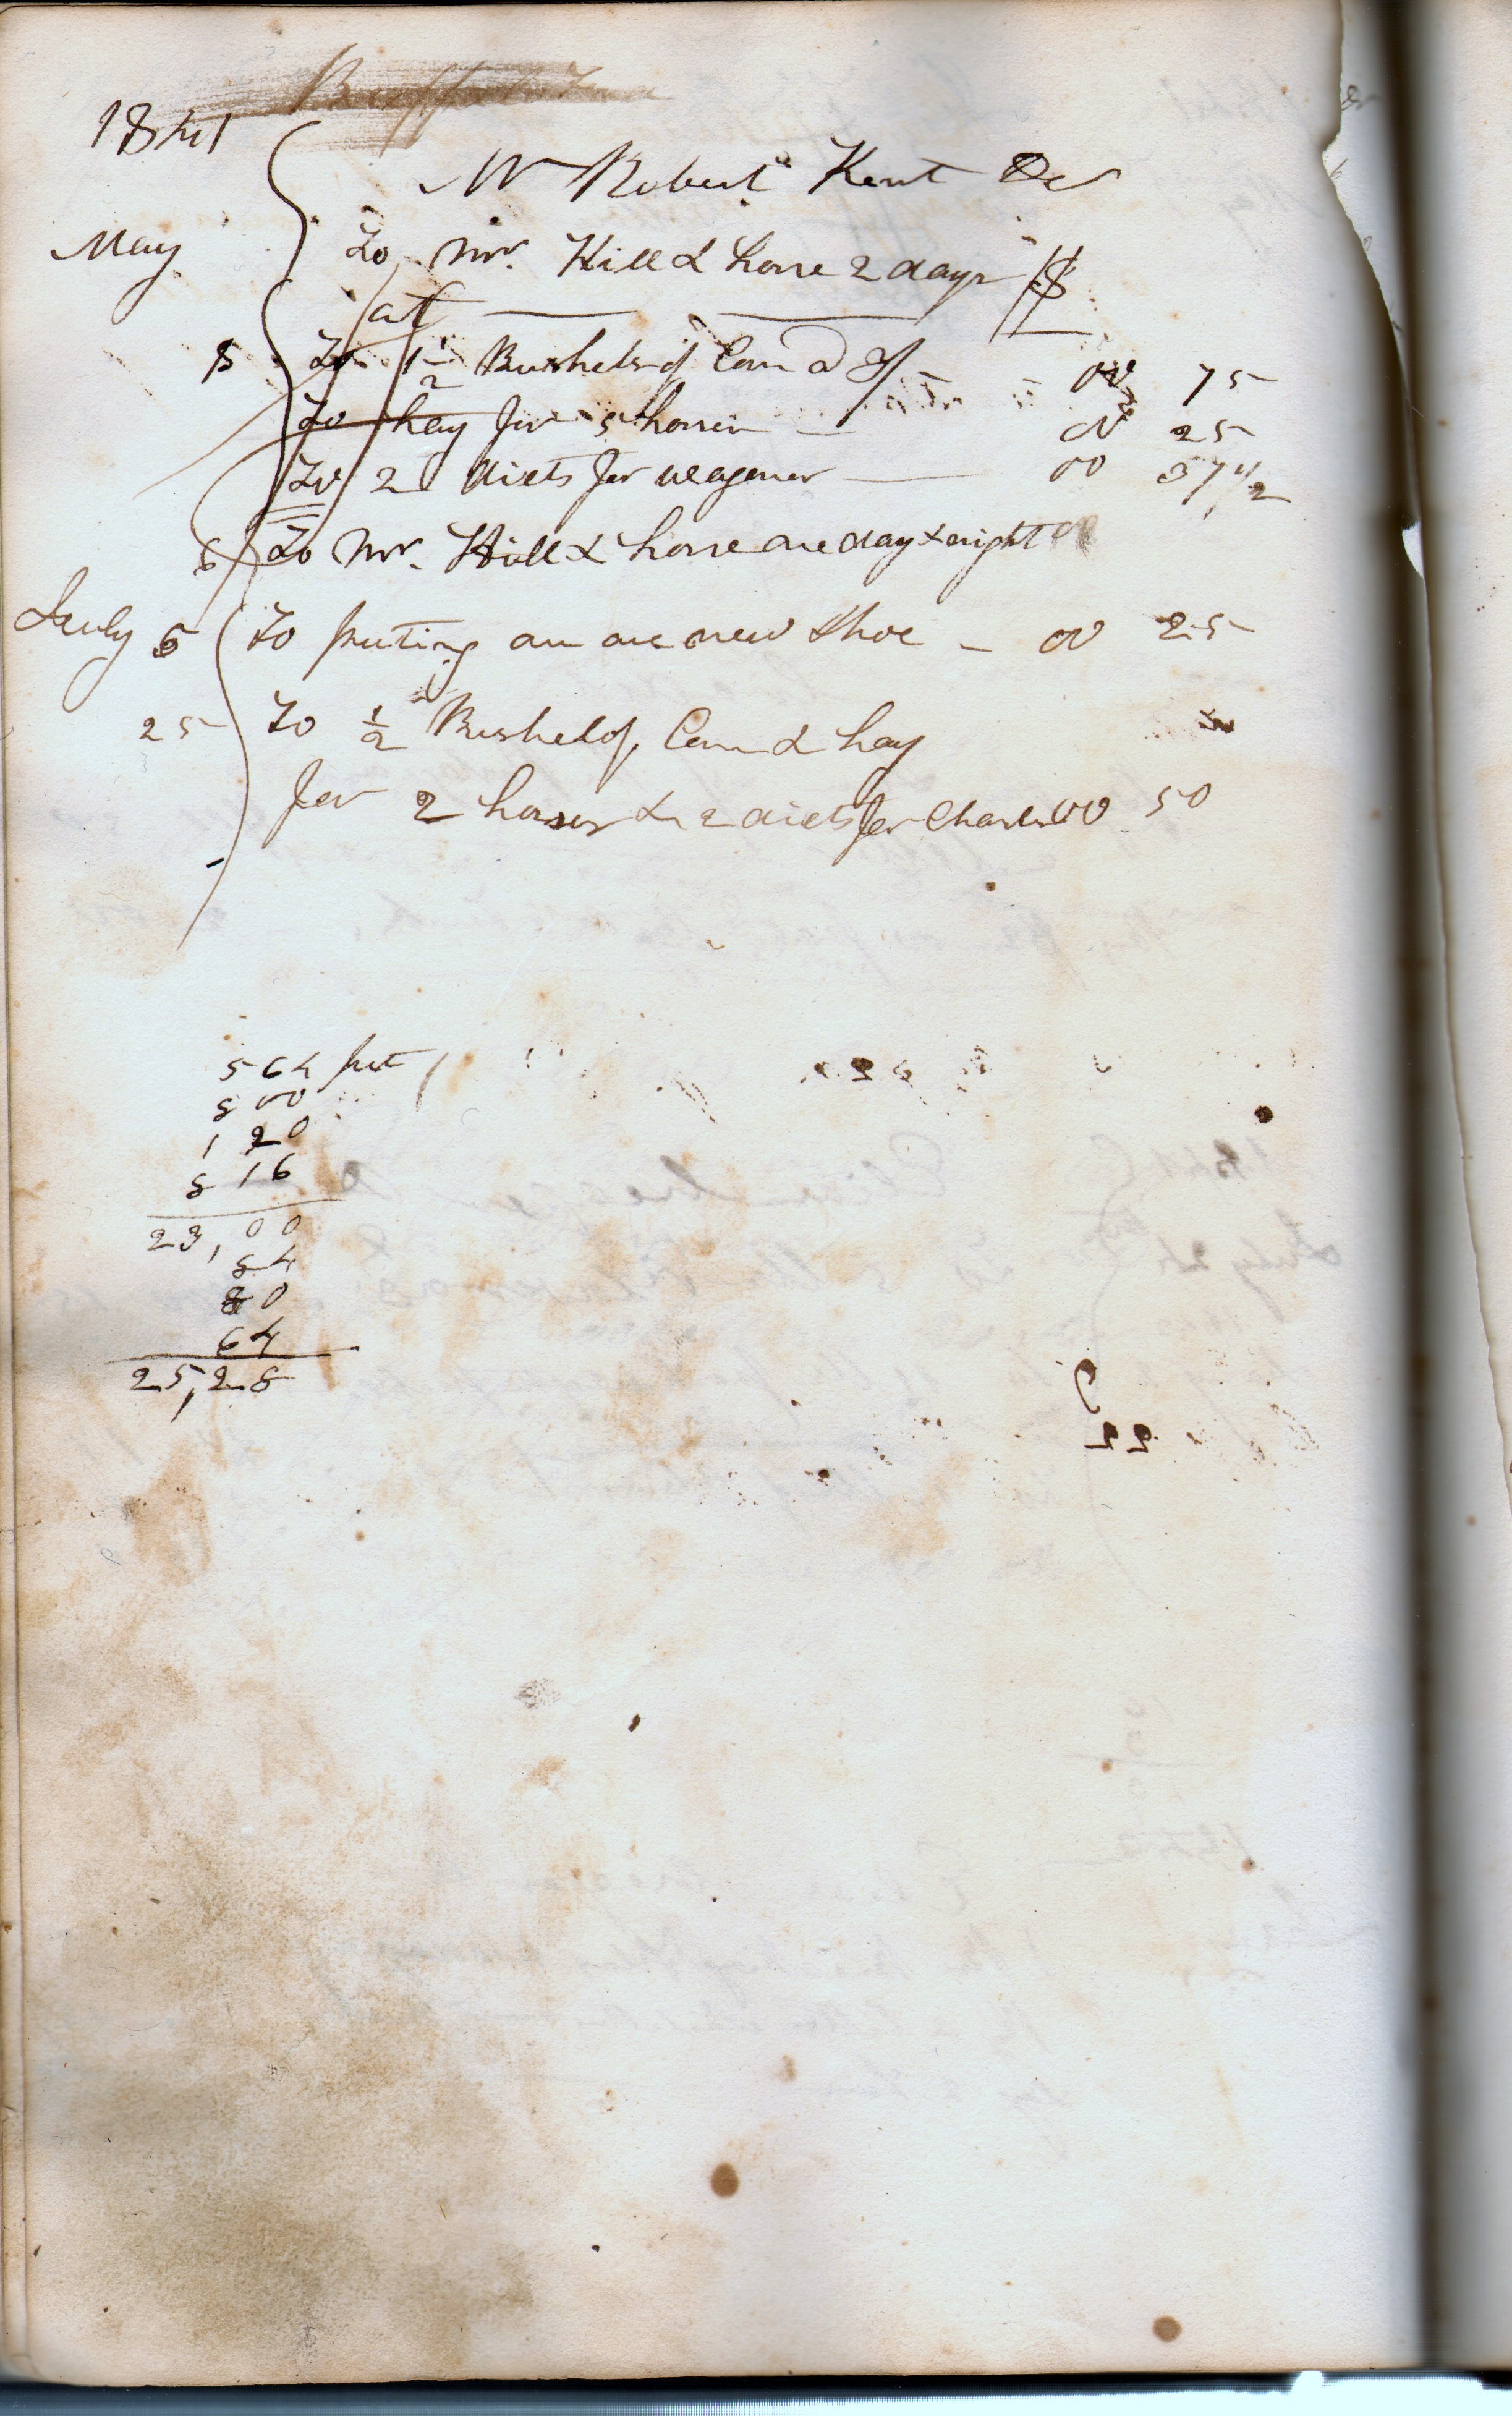 1841
Mr Robert Kent Dr
May To Mr. Hill & horse 2 days $
at
5 To 1 1/2 Bushels of Corn a 3/ - 00 75
To hay for 5 horses - 00 25
To 2 diets for wagoner — 00 37 1/2
6 To Mr. Hill & horse one day & night
July 5 To puting on one new Shoe - 00 25
25 To 1/2 Bushel of Corn & hay
for 2 horses & 2 diets for Charles 00 50
564 feet
800
120
816
23,00
84
80
64
25,28